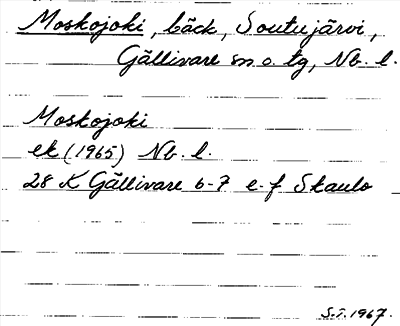 Moskojoki, bäck, Soutujärvi,
Gällivare sn o. tg, Nb. l.
Moskojoki
ek (1965) Nb. l.
28 K Gällivare 6-7 e-f Skaulo
S.T. 1967.